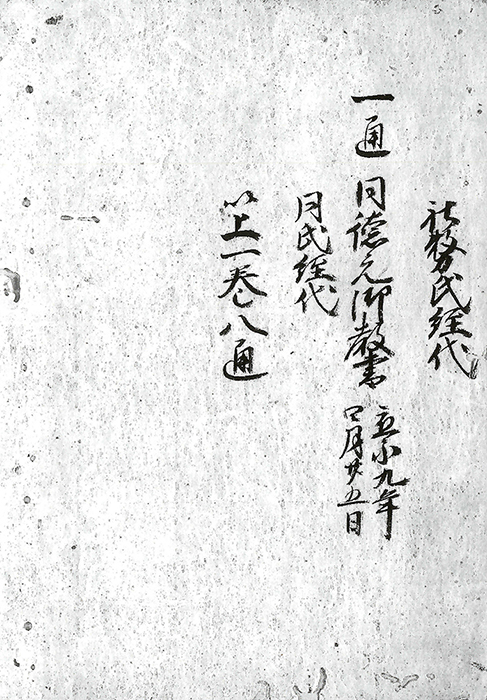 社務氏経代
一通 同徳元御教書 応永九年
月廿五日
同氏経代
以上一巻八通